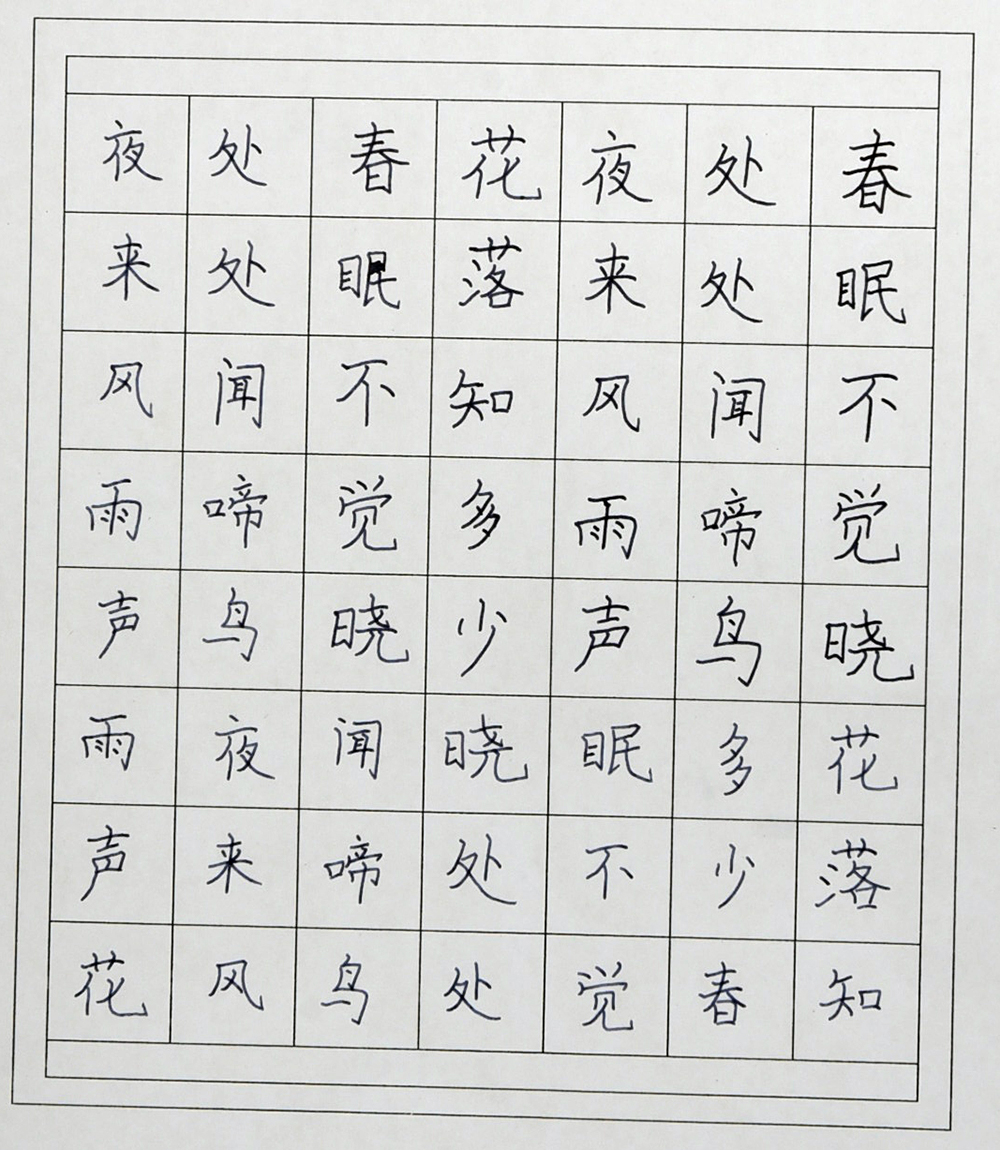 春眠不觉晓花落知
处处闻啼鸟多少春
夜来风雨声眠不觉
花落知多少晓处处
春眠不觉晓闻啼鸟
处处闻啼鸟夜来风
夜来风雨声雨声花